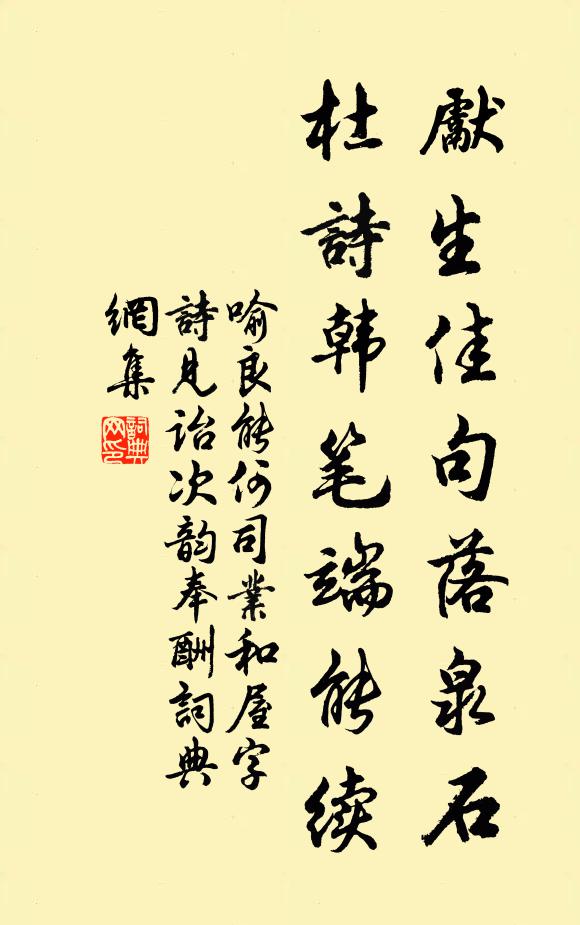 獻生佳句落泉石
杜詩韩笔端能续
喻良能何司業和屋字
詩見詒次韵奉酬詞典
網集
詞典网印